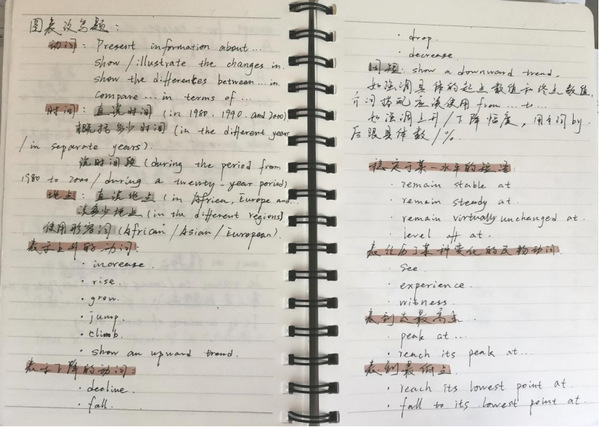 图表改写题:
动词: Present information about...
show/illustrate the changes in.
show the differences between...in
compare...in terms of...
时间: 直读时间 (in 1980, 1990, and 2000)
概括多少时间 (in the different years
/in separate years).
说时间段 (during the period from
1980 to 2000/during a twenty-year period)
地点: 直读地点 (in African, Europe and...
说多少地点 (in the different regions)
使用形容词 (African/Asian/European).
表示上升的动词:
· increase.
· rise.
· grow.
· jump.
· climb.
· show an upward trend.
表示下降的动词
· decline.
· fall.
· drop.
· decrease.
show a downward trend.
如强调具体的起点数值和终点数值,
介词搭配应该使用 from...to...
如强调上升/下降幅度, 用介词 by
后跟具体数/%.
稳定于某一水平的短语:
· remain stable at.
· remain steady at.
· remain virtually unchanged at.
· level off at.
表经历了某种变化的动词:
· see.
· experience.
· witness.
表到达最高点
· peak at...
· reach its peak at...
表到最低点
· reach its lowest point at.
· fall to its lowest point at.